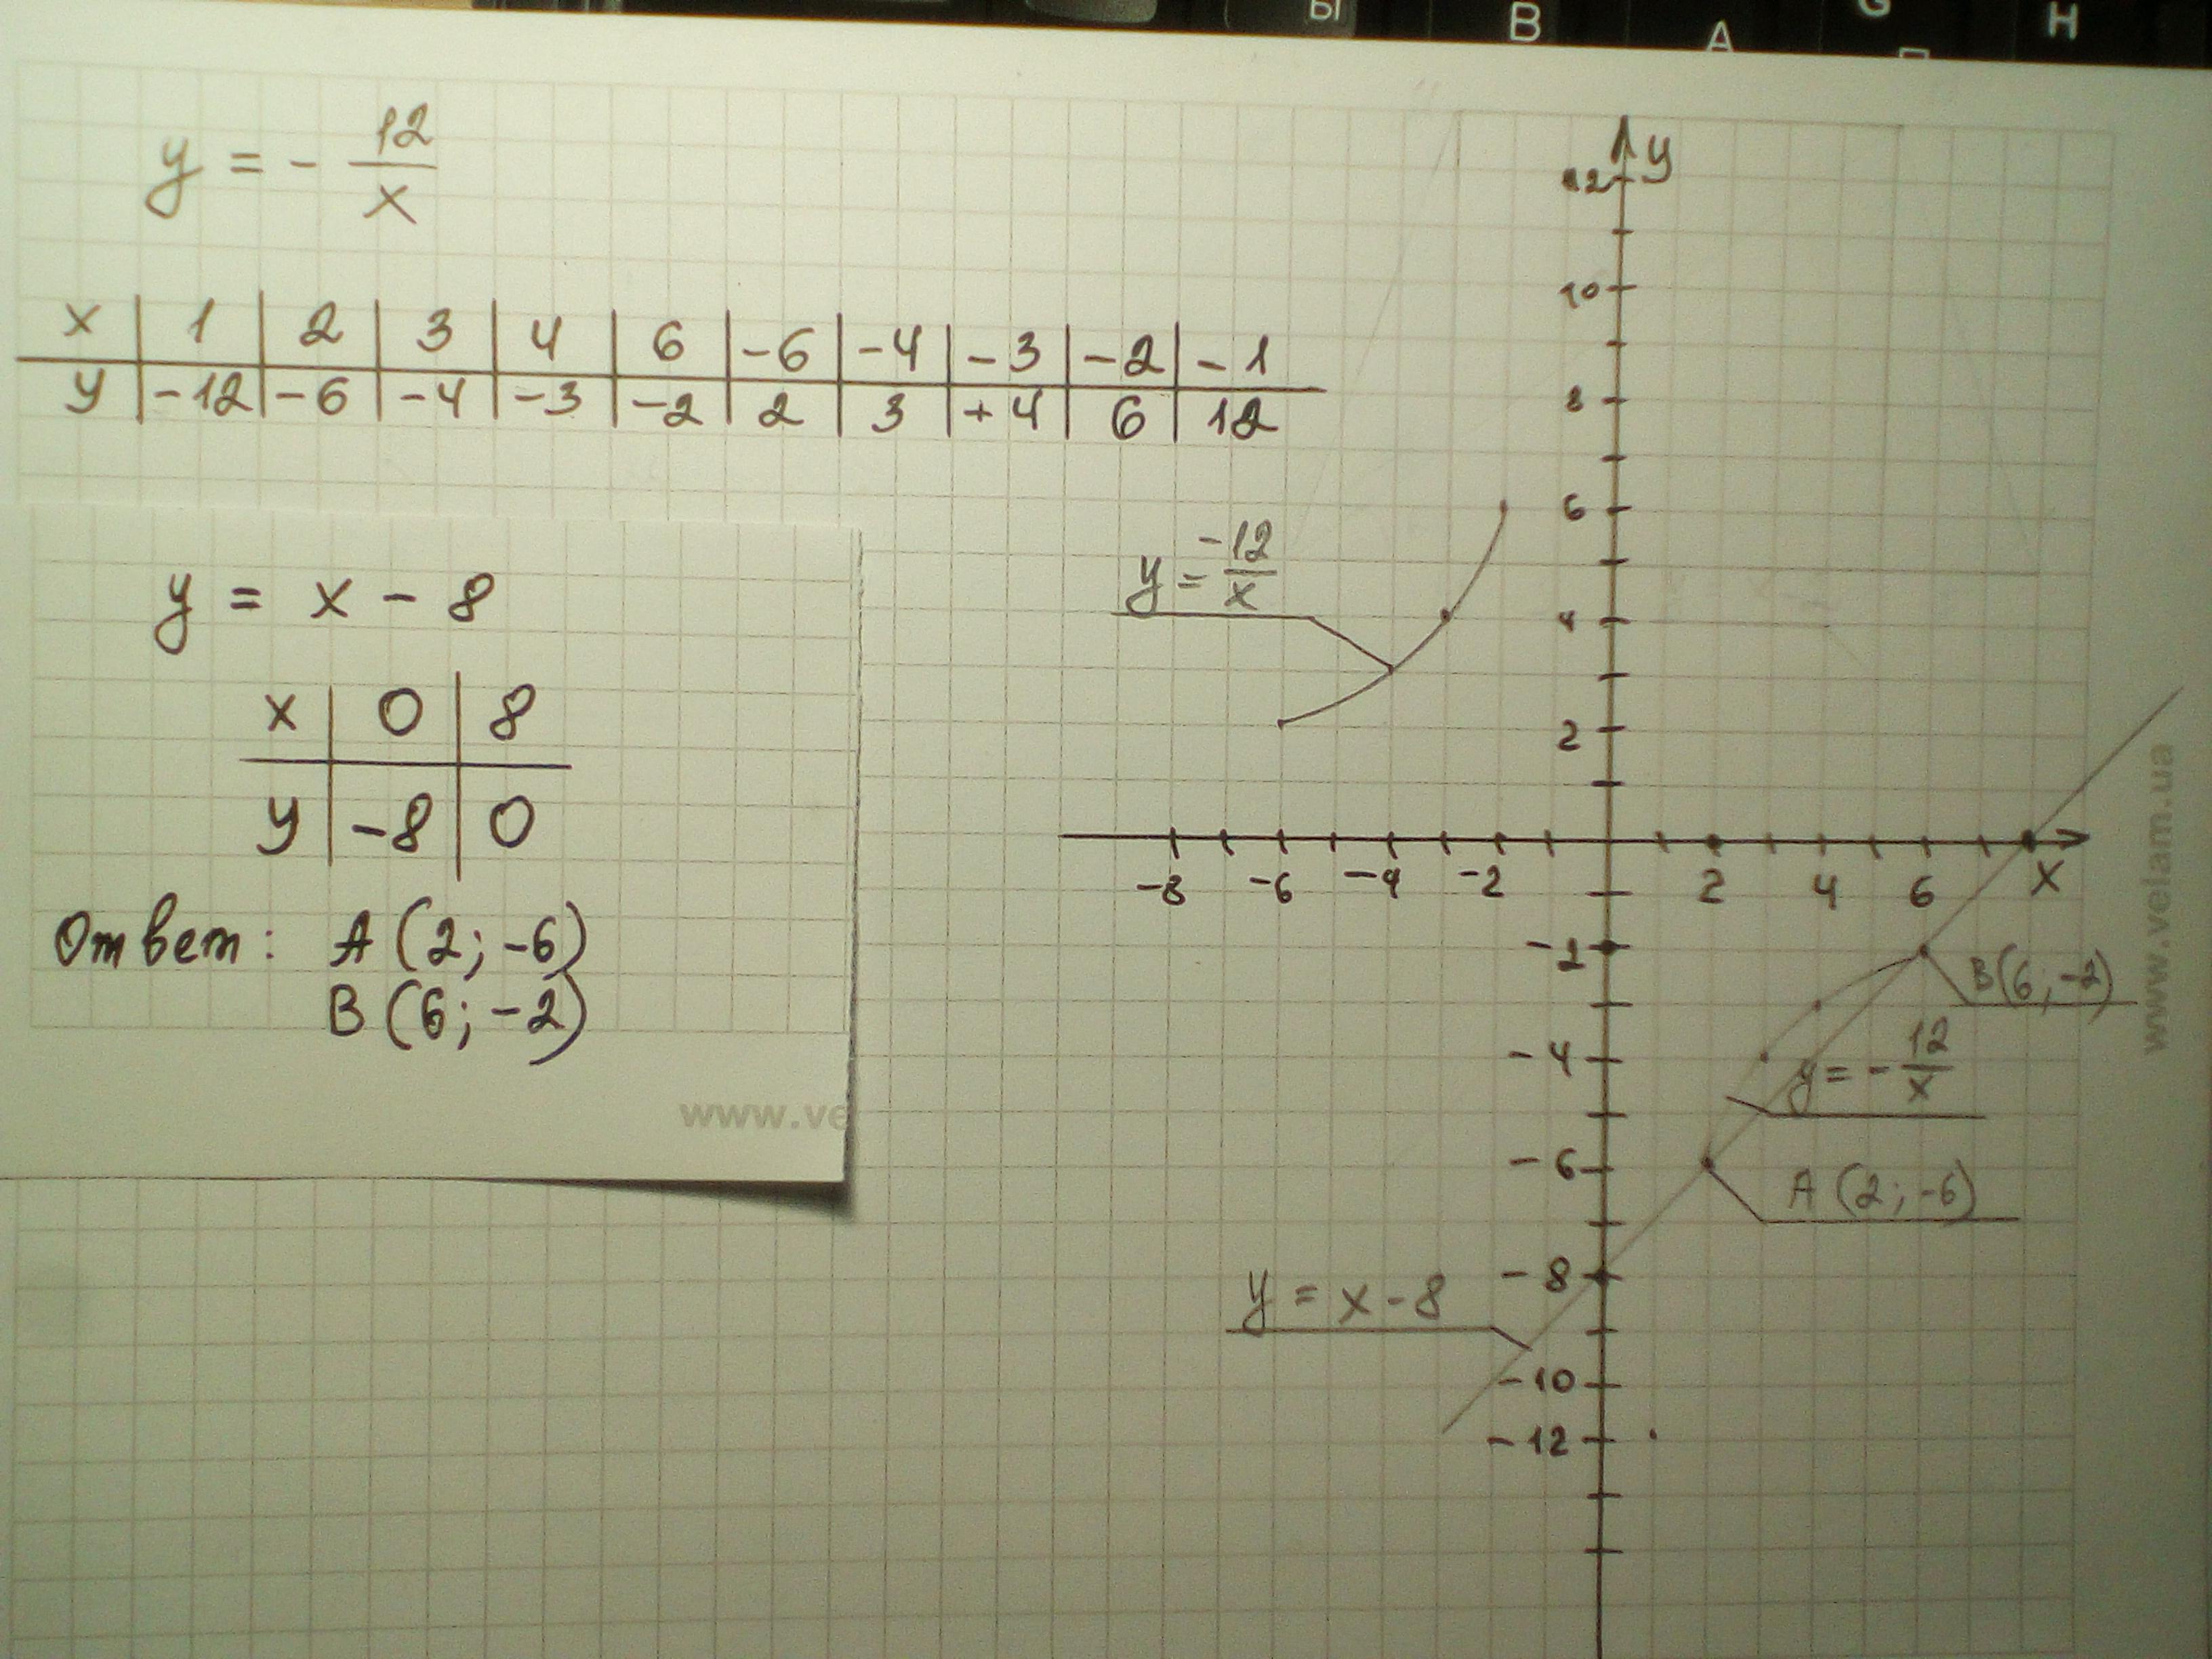 Ы В А П Н
y = - 12/x
x | 1 | 2 | 3 | 4 | 6 | -6 | -4 | -3 | -2 | -1
y | -12 | -6 | -4 | -3 | -2 | 2 | 3 | +4 | 6 | 12
y = x - 8
x | 0 | 8
y | -8 | 0
Ответ: A (2; -6)
B (6; -2)
www.ve
y
12
10
8
6
4
2
y = -12/x
-8 -6 -4 -2 2 4 6 x
-2
-4
-6
-8
-10
-12
B(6; -2)
y = - 12/x
A (2; -6)
y = x - 8
www.velam.ua